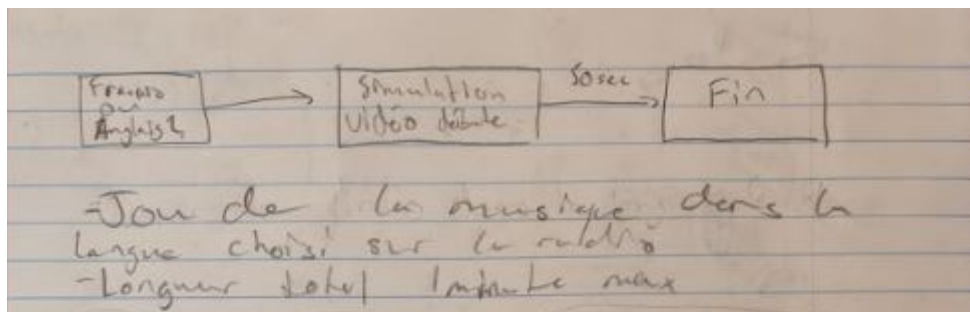 Français
ou
Anglais?
Simulation
vidéo débute
50 sec
Fin
-Jou de la musique dans la
langue choisi sur la radio
-Longueur total 1 minute max